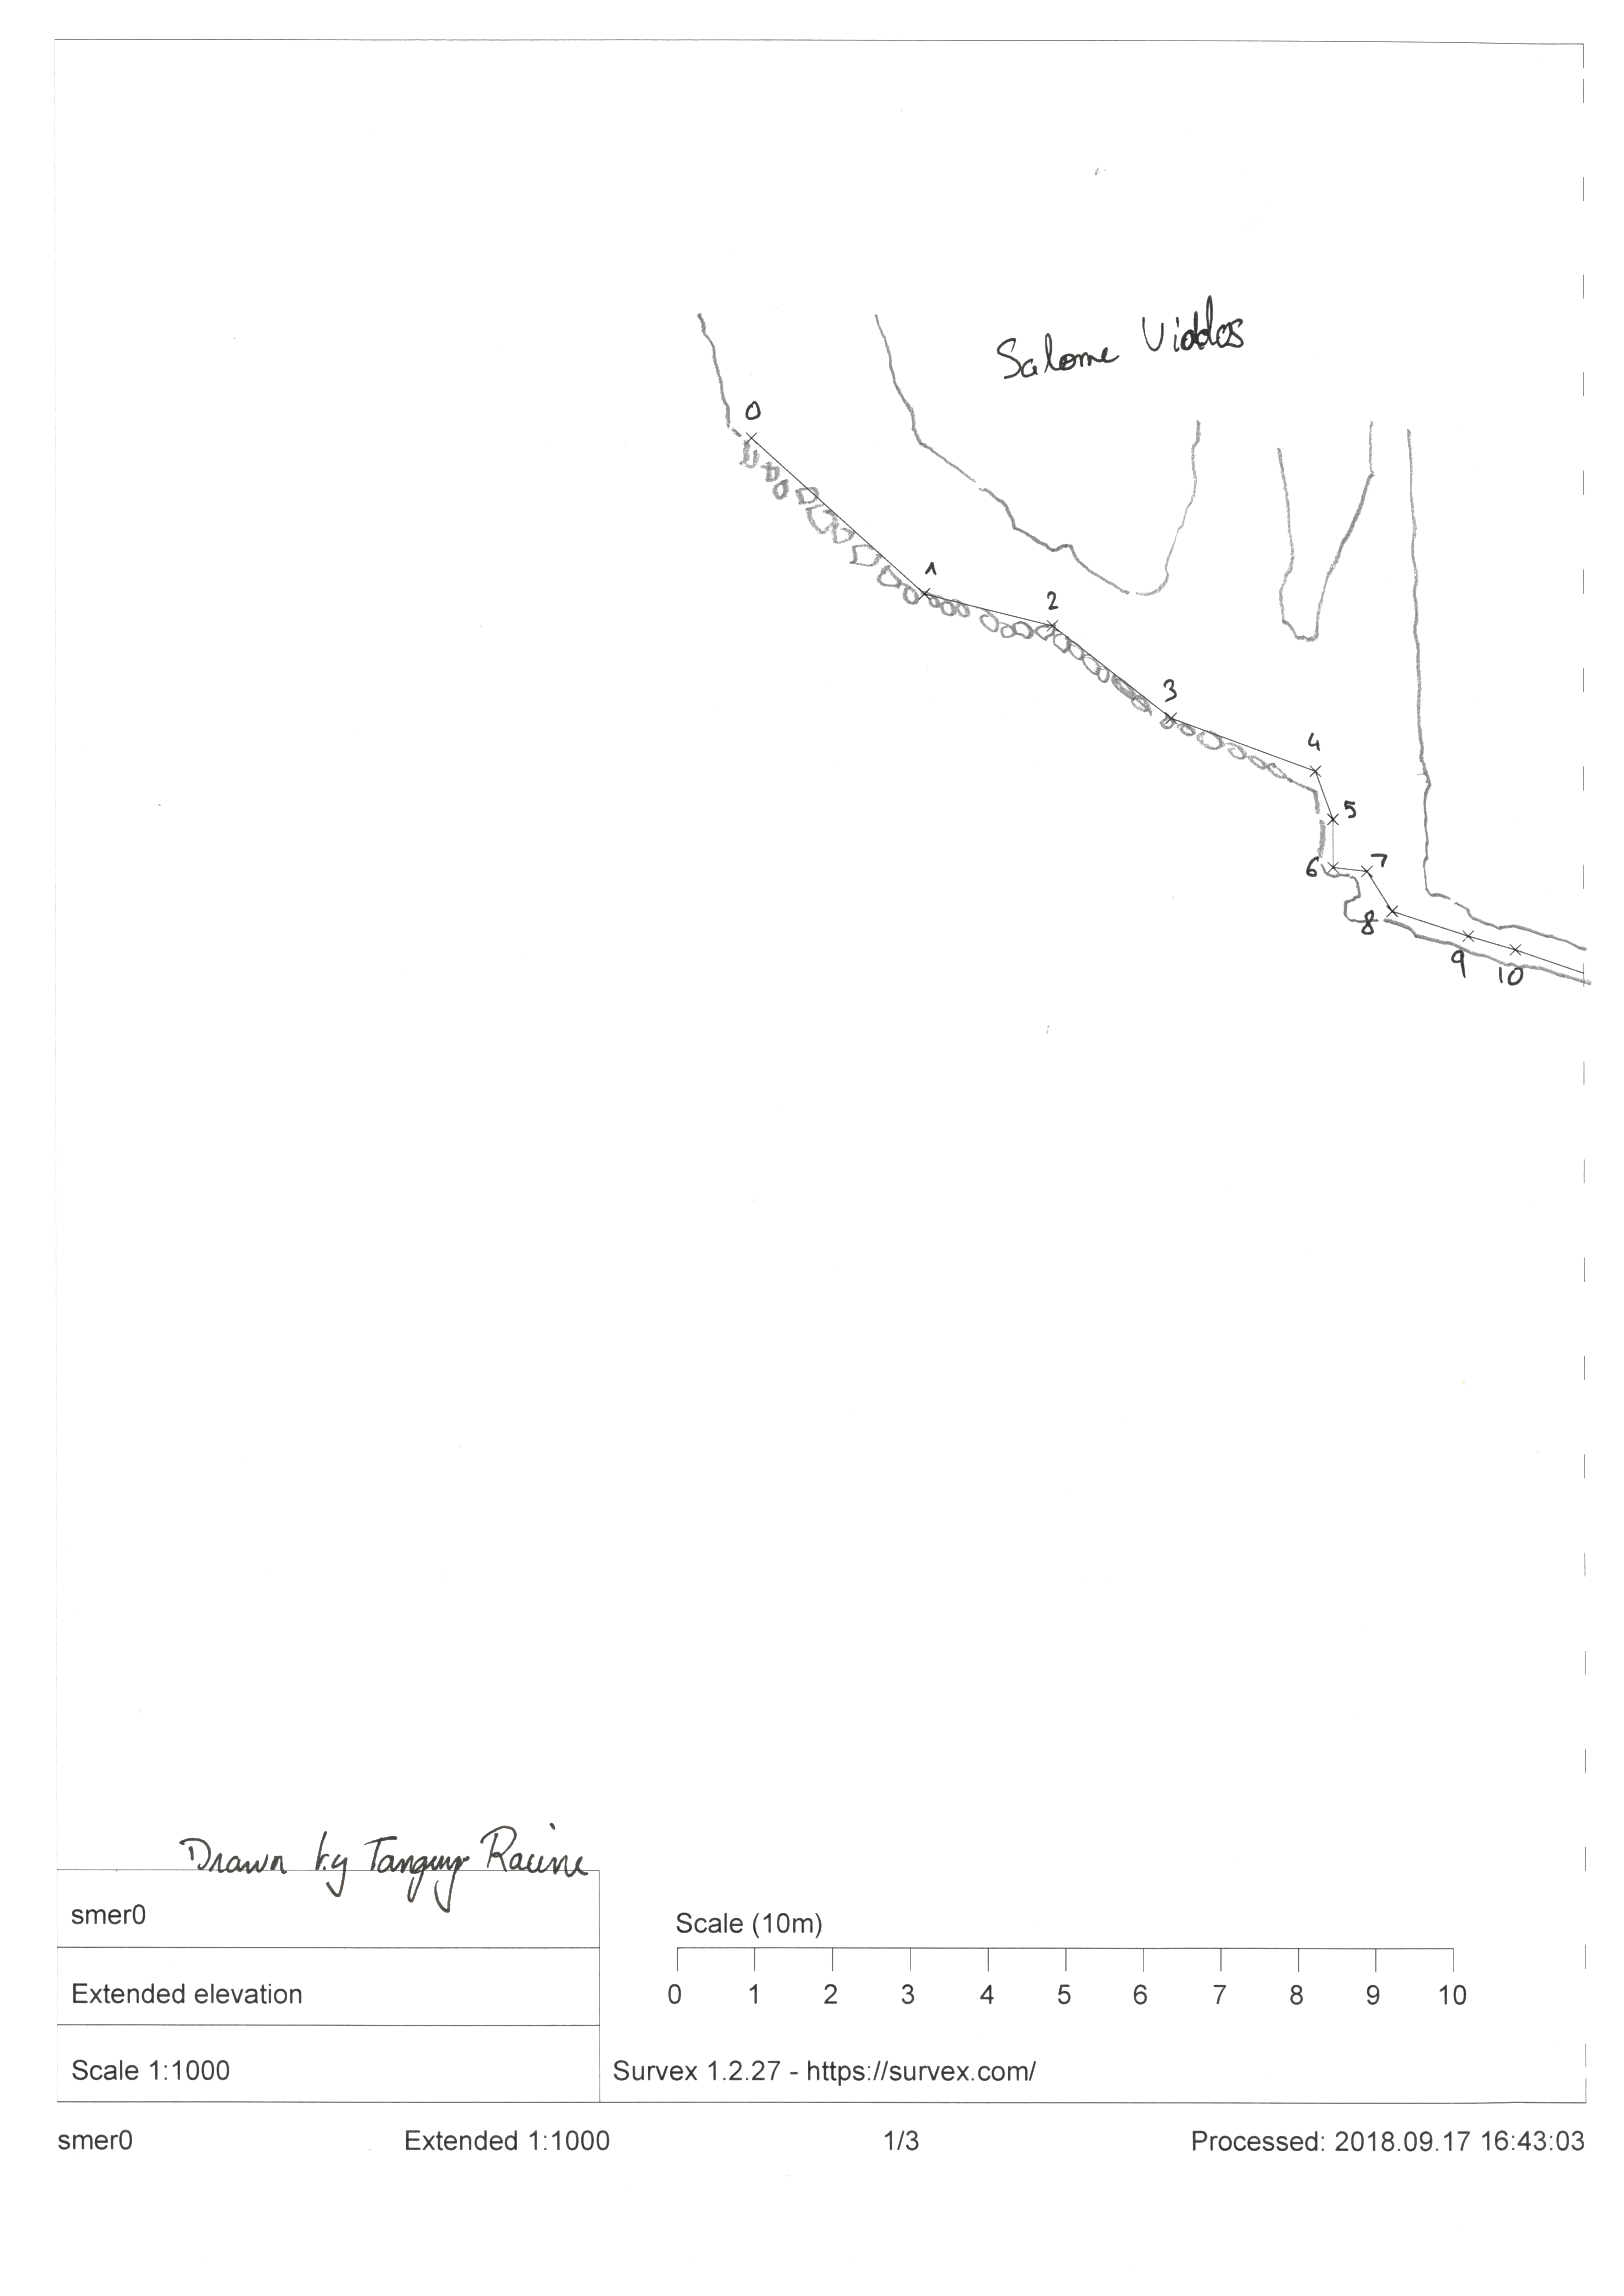 Salome Viddos
0
1
2
3
4
5
6 7
8
9
10
Drawn by Tanguy Racine
smer0
Extended elevation
Scale 1:1000
Scale (10m)
0 1 2 3 4 5 6 7 8 9 10
Survex 1.2.27 - https://survex.com/
smer0 Extended 1:1000 1/3 Processed: 2018.09.17 16:43:03